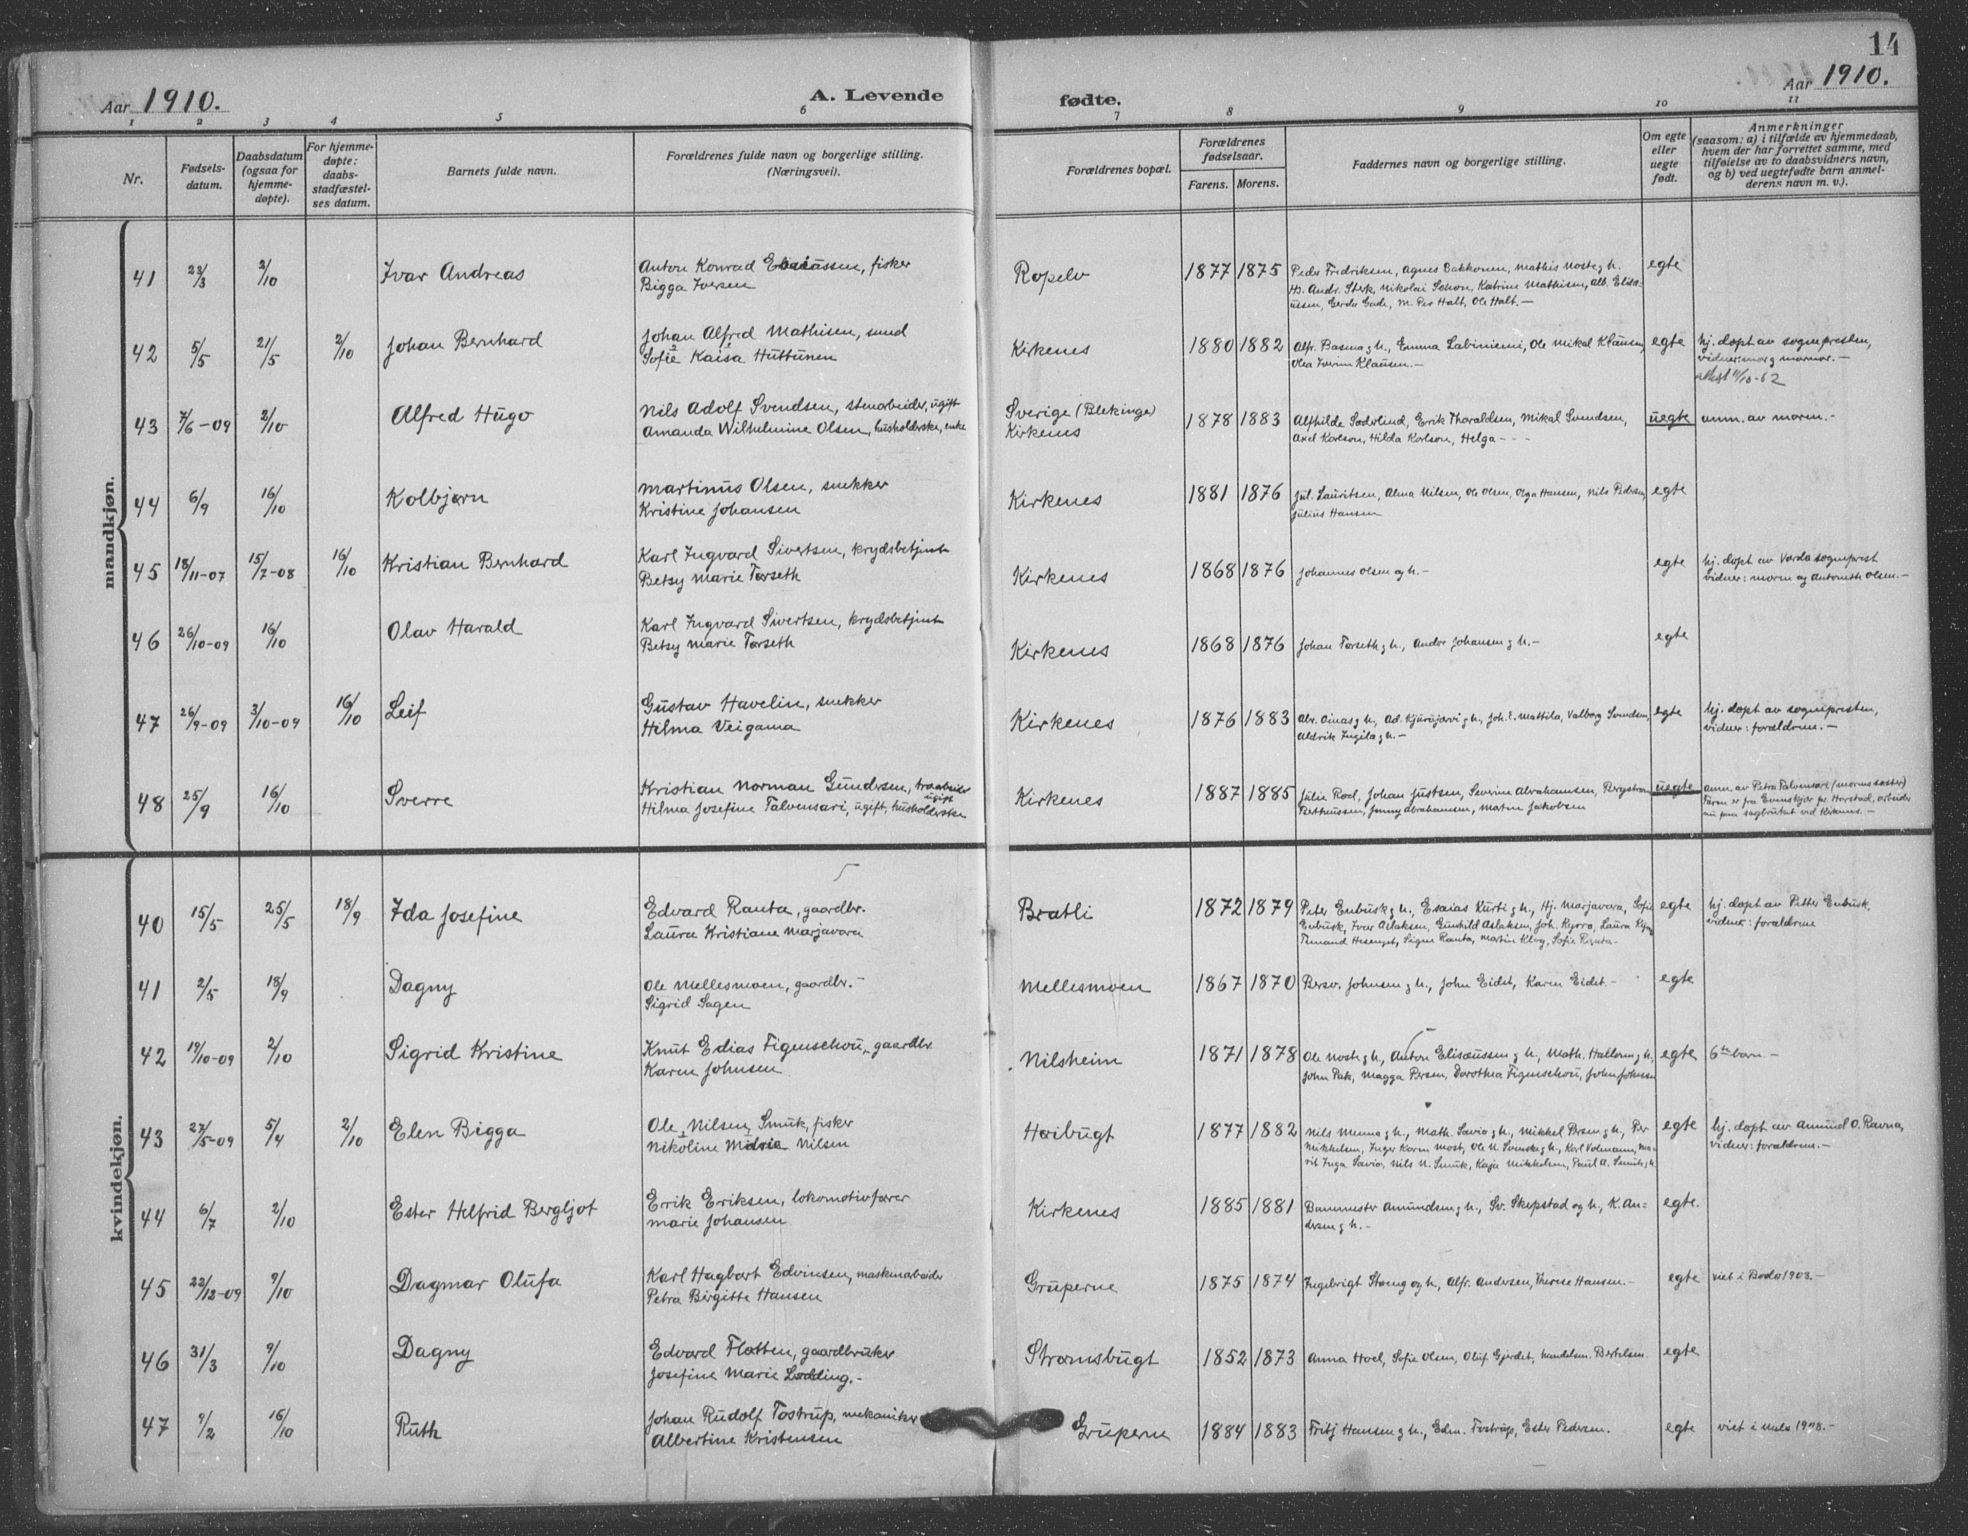 14
Aar 1910.
A. Levende
fødte.
Aar 1910.
1 2 3 4 5 6 7 8 9 10 11
Nr.
Fødsels-
datum.
Daabsdatum
(ogsaa for
hjemme-
døpte).
For hjemme-
døpte:
daabs-
stadfæstel-
ses datum.
Barnets fulde navn.
Forældrenes fulde navn og borgerlige stilling.
(Næringsvei).
Forældrenes bopæl.
Forældrenes
fødselsaar.
Farens. Morens.
Faddernes navn og borgerlige stilling.
Om egte
eller
uegte
født.
Anmerkninger
(saasom: a) i tilfælde av hjemmedaab,
hvem der har forrettet samme, med
tilføielse av to daabsvidners navn,
og b) ved uegtefødte barn anmel-
derens navn m. v.).
mandkjøn.
41 23/3 2/10 Ivar Andreas
Anton Konrad fisker
Bigga Iversen
Ropelv 1877 1875
Peder Fredriksen, Agnes Bakkonen, Mathis Noste g h.
Hs. Andr. Sterk, Nikolai Schøn, Katrine Mathisen, Alb. Elisæ-
ussen, Gerda Gade, M. Per Halt, Ole Halt.—
egte
42 5/5 21/5 2/10 Johan Bernhard
Johan Alfred Mathisen, smed
Sofie Kaisa Huttunen
Kirkenes 1880 1882
Alfr. Basma g h., Emma Labiniemi, Ole Mikal Klausen,
Olea Iverine Klausen.—
egte
hj. døpt av sognepresten,
vidner: mor g mormor.—
43 7/6-09 2/10 Alfred Hugo
Nils Adolf Svendsen, stenarbeider, ugift
Amanda Wilhelmine Olsen, husholderske, enke
Sverige (Blekinge)
Kirkenes
1878 1883
Alfhilde Søderlind, Erik Thoraldsen, Mikal Svendsen,
Axel Karlson, Hilda Karlson, Helga - - -
uegte
anm. av moren.-
44 6/9 16/10 Kolbjørn
Martinus Olsen, snekker
Kristine Johansen
Kirkenes 1881 1876
Jul. Lauritsen, Alma Nilsen, Ole Olsen, Olga Hansen, Nils Pedersen,
Julius Hansen
egte
45 18/11-07 15/7-08 16/10 Kristian Bernhard
Karl Ingvard Sivertsen, krydsbetjent
Betsy Marie Tørseth
Kirkenes 1868 1876
Johannes Olsen og h.-
egte
hj. døpt av Vardø sogneprest
vidner: moren og Olsen.—
46 26/10-09 16/10 Olav Harald
Karl Ingvard Sivertsen, krydsbetjent
Betsy Marie Tørseth
Kirkenes 1868 1876
Johan Tørseth g h., Andor Johansen g h.—
egte
47 26/9-09 3/10-09 16/10 Leif
Gustav Havelin, snekker
Hilma Veigama
Kirkenes 1876 1883
Abr. Oinas g h., Ad. Kjurujærvi g h., Joh. E. Mattila, Valborg Svendsen,
Aldrik g h.—
egte
hj. døpt av sognepresten,
vidner: forældrene.—
48 25/9 16/10 Sverre
Kristian Norman Gundersen,
ugift
Hilma Josefine Talvensari, ugift, husholderske
Kirkenes 1887 1885
Julie Roel, Johan Justsen, Severine Abrahamsen, Bergstrøm
Bertheussen, Jenny Abrahamsen, Martin Jakobsen
uegte
anm. av Petra Talvensari (morens søster)
Faren er fra Evenskjer pr. Harstad, arbeider
nu paa sagbruket ved Kirkenes.—
kvindekjøn.
40 15/5 25/5 18/9 Ida Josefine
Edvard Ranta, gaardbr.
Laura Kristiane Marjavara
Bratli 1872 1879
Peter Enbusk g h., Esaias Kurti g h., Hj. Marjavara, Sofie
Enbusk, Ivar Aslaksen, Gunhild Aslaksen, Joh. Kyrrø, Laura
Signe Ranta, Martin Sofie Ranta-
egte
hj. døpt av Petter Enbusk,
vidner: forældrene
41 2/5 18/9 Dagny
Ole Mellesmoen, gaardbr.-
Sigrid Sagen
Mellesmoen 1867 1870
Bersv. Johnsen g h., John Eidet, Karen Eidet.-
egte
42 19/10-09 2/10 Sigrid Kristine
Knut Edias Figenschou, gaardbr.
Karen Johnsen
Nilsheim 1871 1878
Ole Noste g h., Anton Elisæussen g h., Math. Halloren g h.,
John Pak, Magga Persen, Dorothea Figenschou, John Johnsen
egte
6te barn.-
43 27/5-09 5/4 2/10 Elen Bigga
Ole Nilsen Smuk, fisker
Nikoline Marie Nilsen
Høibugt 1877 1882
Nils Menna g h., Math. Savio g h., Mikkel Persen g h., Per
Mikkelsen, Inger Karen Most, Ole N. Svenske g h., Karl Volmann, Ma-
rit Inga Savio, Nils N. Smuk, Kaja Mikkelsen, Paul A. Smuk g h.
egte
hj. døpt av Amund O. Ravna,
vidner: forældrene.—
44 6/7 2/10 Ester Helfrid Bergljot
Erik Eriksen, lokomotivfører
Marie Johansen
Kirkenes 1885 1881
Banemester Amundsen g h., Sv. Skipstad og h., K. An-
dersen g h.—
egte.
45 22/12-09 9/10 Dagmar Olufa
Karl Hagbart Edvinsen, maskinarbeider
Petra Birgitte Hansen
Gruperne 1875 1874
Ingebrigt Strøm og h., Alfr. Andersen, Therese Hansen.—
egte
viet i Bodø 1903.—
46 31/3 9/10 Dagny
Edvard Fløtten, gaardbruker
Josefine Marie Lødding.-
Strømsbugt 1852 1873
Anna Hoel, Sofie Olsen, Oluf Gjerdet, handelsm. Bertelsen.
egte
47 9/2 16/10 Ruth
Johan Rudolf Tostrup, mekaniker
Albertine Kristensen
Gruperne 1884 1883
Fritj Hansen g h., Edm. Tostrup, Ester Pedersen.
egte
viet i 1908.-